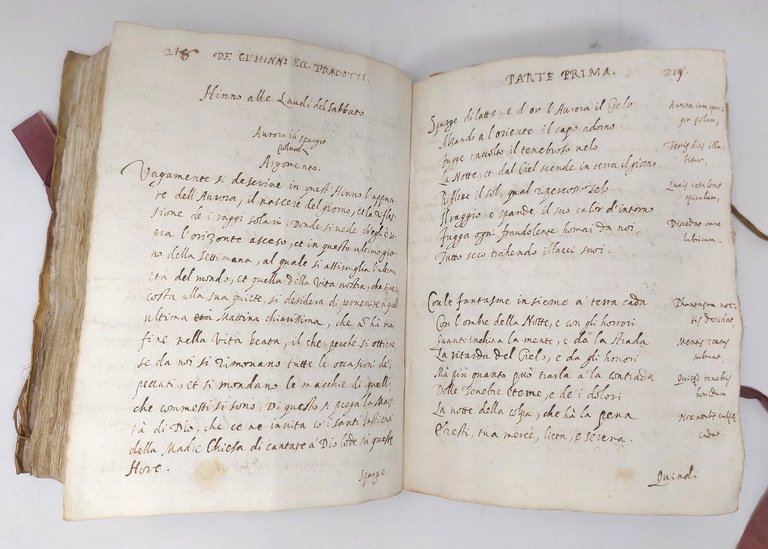 218
DE GL'HINNI ECC. TRADOTTI.
Hinno alle Laudi del Sabbato
Aurora ia spargit
polum
Argomento.
Vagamente si descrive in quest' Hinno l'appari-
te dell'Aurora, il nascere del giorno, et la refles-
sione de i raggi solari; Donde si vede ch'egli è so-
pra l'orizonte asceso, et in questo ultimo gior-
no della settimana, al quale si assimiglia l'ultima
età del mondo, et quella della vita nostra, che
costa alla sua quiete, si desidera di
ultima Mattina chiarissima, che nō hà mai
fine nella vita beata, il che, perche si ottiene
se da noi si rimovano tutte le occasioni de'
peccati, et si mondano le macchie di quelli
che commessi si sono; Di questo si prega la Maes-
tà di Dio, che ce ne invita cō i santi
della Madre Chiesa di cantare a Dio lode in queste
Hore.
Sparge
PARTE PRIMA.
219.
Sparge di latte, e d'or l'Aurora il Cielo
Alzando a l'oriente il capo adorno
Fugge raccolto il tenebroso velo
La Notte, et dal Ciel scende in terra il giorno
Riflette il sol, qual ripercosso telo
Il raggio, e spande il suo calor d'intorno
Fugga ogni fraudolente homai da noi,
Tutto seco trahendo i lacci suoi.
Aurora iam spar-
git polum,
Terris dies illa-
bitur,
Lucis resultat
spiculum,
Discedat omne
lubricum.
Con le fantasme insieme a' terra cada
Con l'ombre della Notte, e con gli horrori
Quant' inchina la mente, e da la strada
La ritarda del Cielo, e da gli honori
Mà più quanto può trarla a' la contrada
Delle Tenebre eterne, e de i dolori
La notte della colpa, che hà la pena
E resti, tua mercè, lieta, e serena.
Phantasma noc-
tis decidat
Mentis reatus
subruat,
Quicquid tenebris
horridum
Nox attulit culpę,
cadat.
Quindi